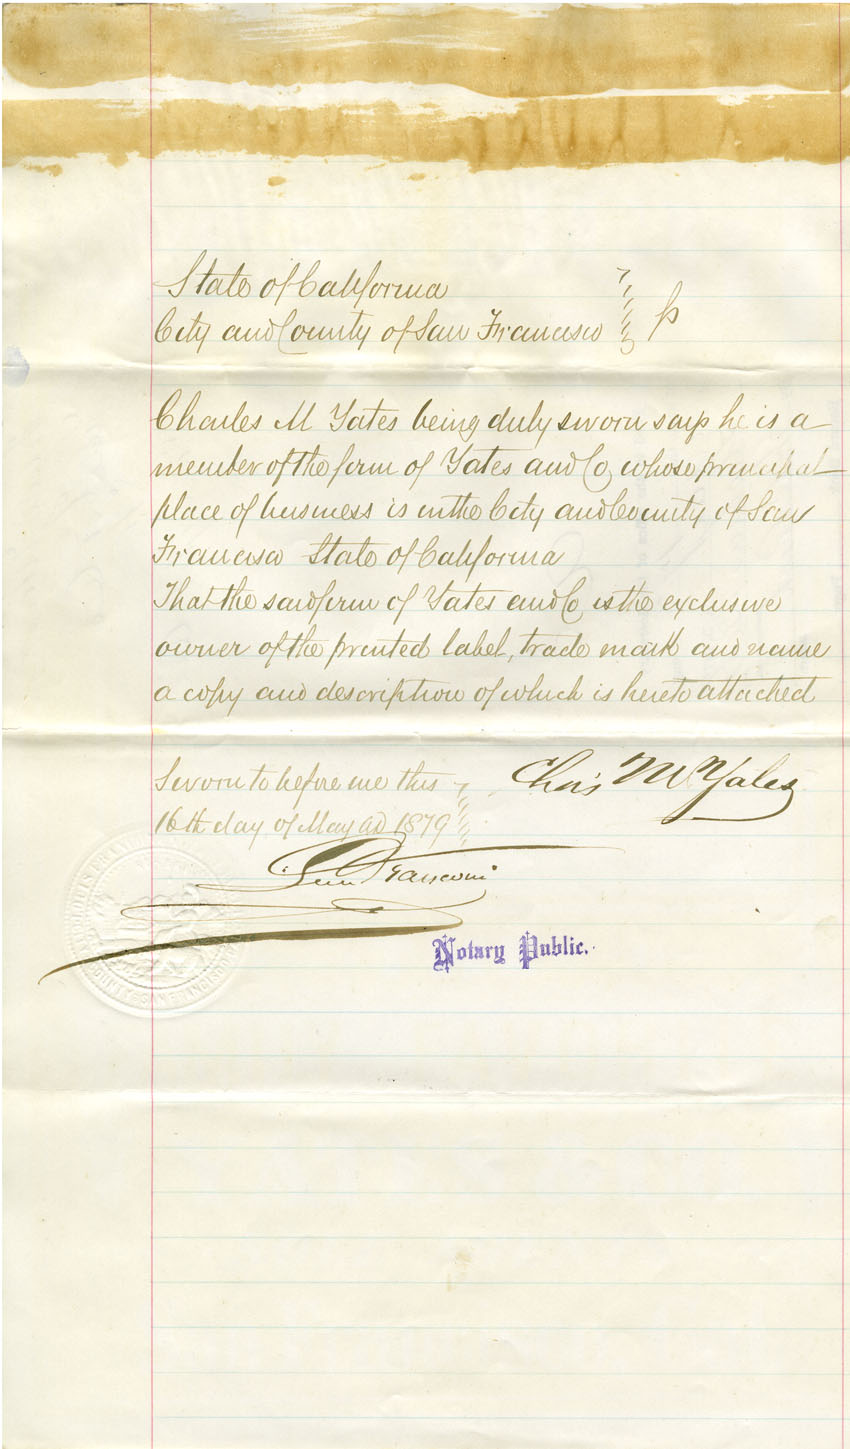 State of California
City and County of San Francisco } ss
Charles M Yates being duly sworn says he is a
member of the firm of Yates and Co, whose principal
place of business is in the City and County of San
Francisco State of California
That the said firm of Yates and Co is the exclusive
owner of the printed label, trade mark and name
a copy and description of which is hereto attached
Sworn to before me this
16th day of May AD 1879
Chas M Yates
Franconi
Notary Public.